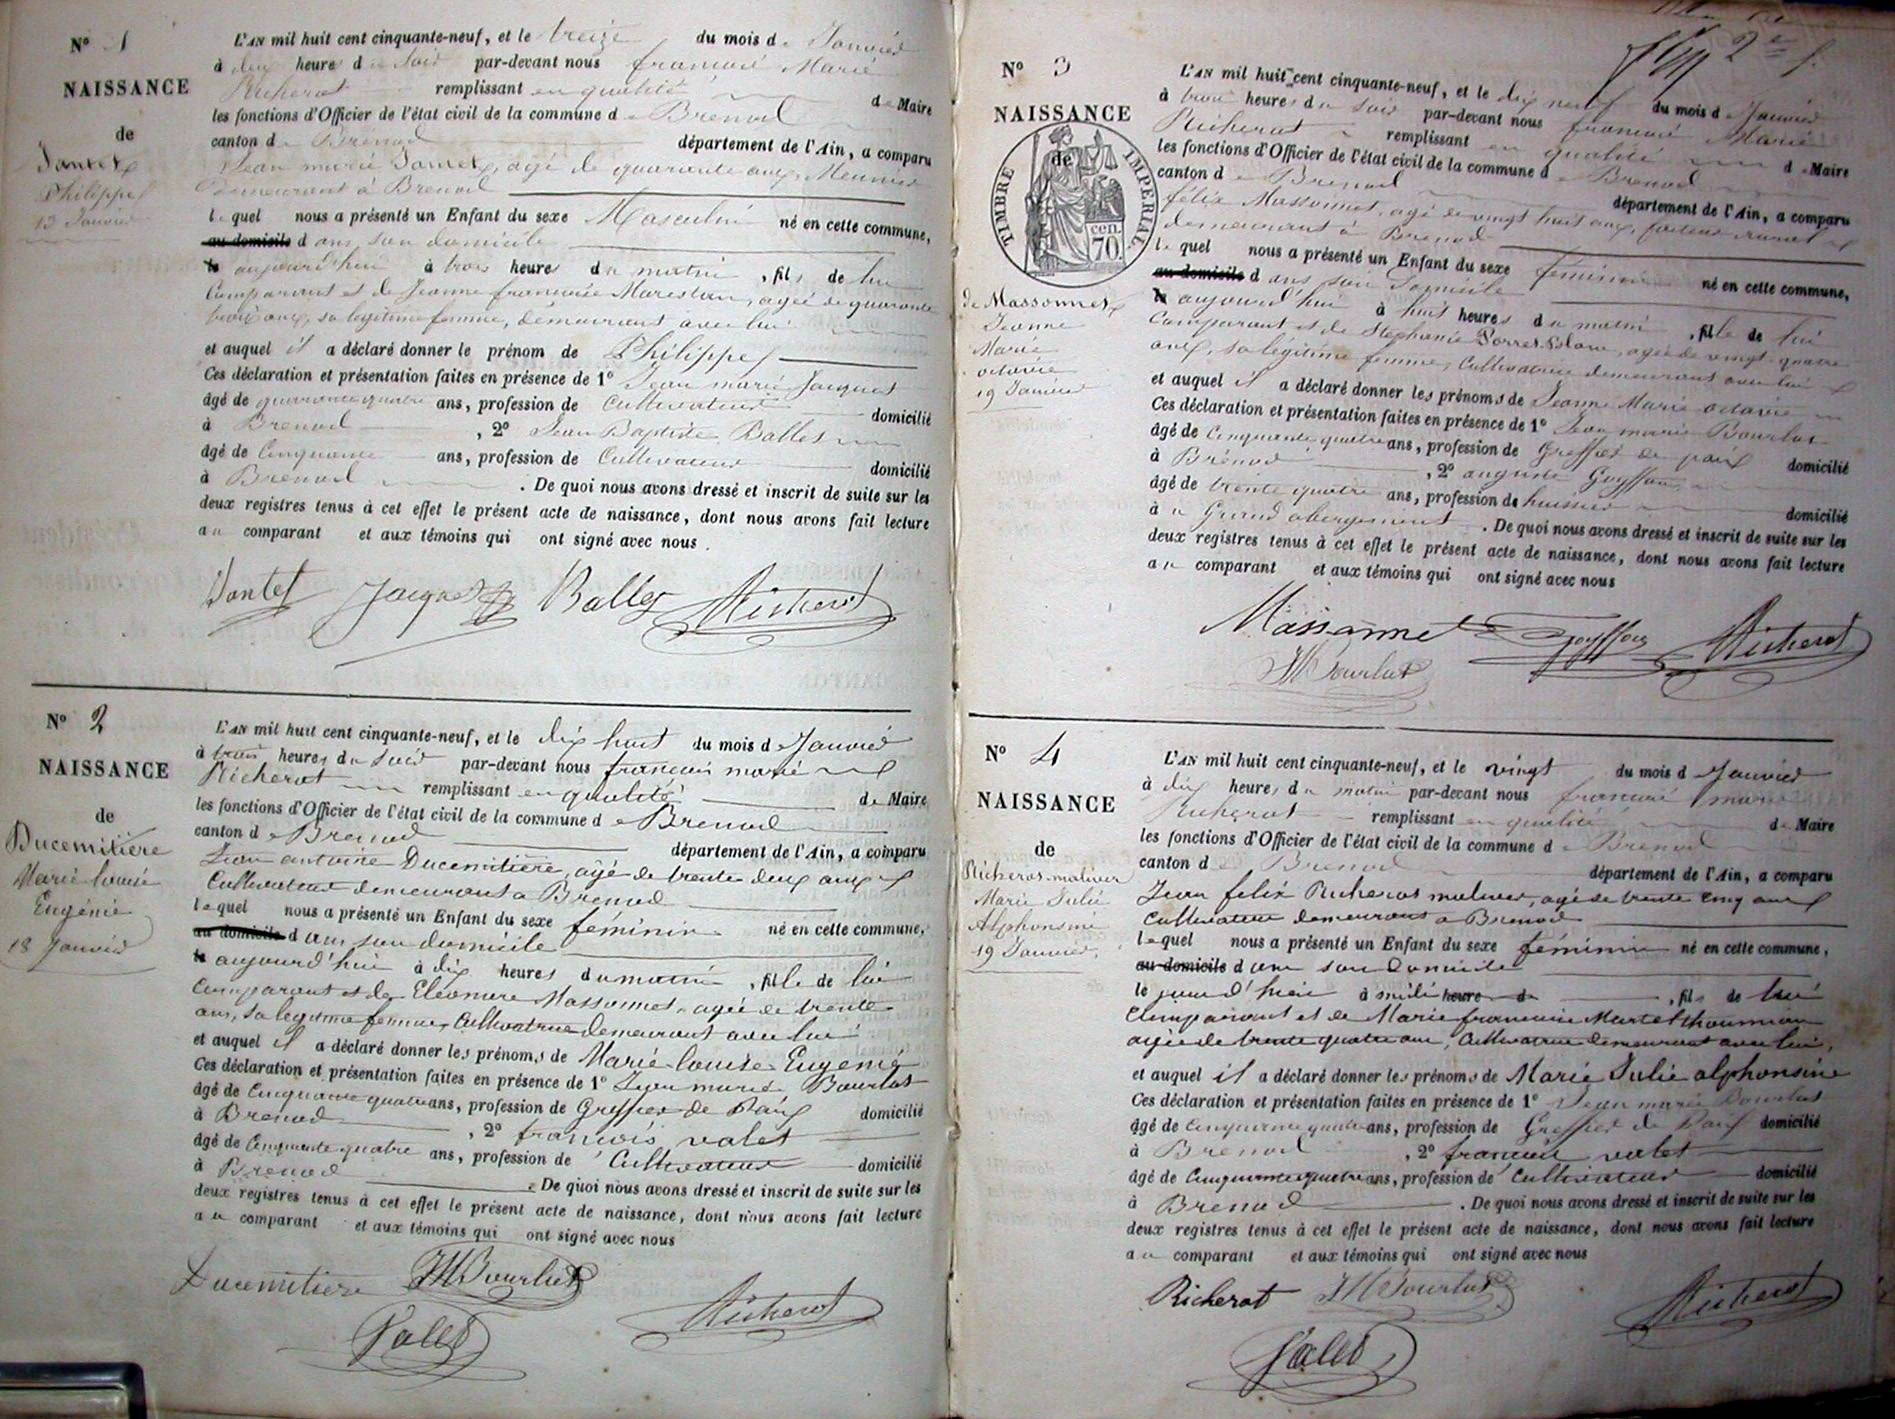 N° 1
NAISSANCE
de
Jantet
Philippe
13 Janvier
L'AN mil huit cent cinquante-neuf, et le treize du mois de Janvier
à deux heures du soir par-devant nous françois Marie
Richerot remplissant en qualité de Maire
les fonctions d'Officier de l'état civil de la commune de Brenod
canton de Brénod département de l'Ain, a comparu
Jean marie Jantet, agé de quarante ans, Meunier
demeurant à Brenod
lequel nous a présenté un Enfant du sexe Masculin né en cette commune,
au domicile dans son domicile
le aujourd'hui à trois heures du matin, fils de lui
Comparant et de Jeanne françoise Marestan, agée de quarante
trois ans, sa légitime femme, demeurant avec lui
et auquel il a déclaré donner le prénom de Philippe
Ces déclaration et présentation faites en présence de 1° Jean marie Jacquet
âgé de quarante quatre ans, profession de Cultivateur domicilié
à Brenod, 2° Jean Baptiste Ballet
âgé de Cinquante ans, profession de Cultivateur domicilié
à Brenod. De quoi nous avons dressé et inscrit de suite sur les
deux registres tenus à cet effet le présent acte de naissance, dont nous avons fait lecture
au comparant et aux témoins qui ont signé avec nous.
Jantet Jacquet Ballet Richerot
N° 2
NAISSANCE
de
Ducemitière
Marie Louise
Eugénie
18 Janvier
L'AN mil huit cent cinquante-neuf, et le dix huit du mois de Janvier
à trois heures du soir par-devant nous françois marie
Richerot remplissant en qualité de Maire
les fonctions d'Officier de l'état civil de la commune de Brenod
canton de Brenod département de l'Ain, a comparu
Jean antoine Ducemitière, agé de trente deux ans
Cultivateur demeurant a Brenod
lequel nous a présenté un Enfant du sexe féminin né en cette commune,
au domicile dans son domicile
le aujourd'hui à dix heures du matin, fille de lui
Comparant et de Eléonore Massonnet, agée de trente
ans, sa legitime femme, Cultivatrice demeurant avec lui
et auquel il a déclaré donner les prénoms de Marie Louise Eugenie
Ces déclaration et présentation faites en présence de 1° Jean marie Bourlot
âgé de Cinquante quatre ans, profession de Greffier de Paix domicilié
à Brenod, 2° françois valet
âgé de Cinquante quatre ans, profession de Cultivateur domicilié
à Brenod. De quoi nous avons dressé et inscrit de suite sur les
deux registres tenus à cet effet le présent acte de naissance, dont nous avons fait lecture
au comparant et aux témoins qui ont signé avec nous
Ducemitiere JMBourlot
Valet Richerot
2e f.
N° 3
NAISSANCE
de
TIMBRE IMPERIAL
cen.
70.
de Massonnet
Jeanne
Marie
octavie
19 Janvier
L'AN mil huit cent cinquante-neuf, et le dix neuf du mois de Janvier
à trois heures du soir par-devant nous françois Marie
Richerot remplissant en qualité de Maire
les fonctions d'Officier de l'état civil de la commune de Brenod
canton de Brenod département de l'Ain, a comparu
félix Massonnet, agé de vingt huit ans, facteur rural
demeurant à Brenod
lequel nous a présenté un Enfant du sexe féminin né en cette commune,
au domicile dans son domicile
le aujourd'hui à huit heures du matin, fille de lui
Comparant et de Stephanie Perret Blanc, agée de vingt quatre
ans, sa légitime femme, Cultivatrice demeurant avec lui
et auquel il a déclaré donner les prénoms de Jeanne Marie octavie
Ces déclaration et présentation faites en présence de 1° Jean marie Bourlot
âgé de Cinquante quatre ans, profession de Greffier de paix domicilié
à Brénod, 2° auguste Goyffon
âgé de trente quatre ans, profession de huissier domicilié
à u Grand abergement. De quoi nous avons dressé et inscrit de suite sur les
deux registres tenus à cet effet le présent acte de naissance, dont nous avons fait lecture
au comparant et aux témoins qui ont signé avec nous
Massonnet Goyffon Richerot
JMBourlot
N° 4
NAISSANCE
de
Richerot-molinier
Marie Julie
Alphonsine
19 Janvier
L'AN mil huit cent cinquante-neuf, et le vingt du mois de Janvier
à dix heures du matin par-devant nous françois marie
Richerot remplissant en qualité de Maire
les fonctions d'Officier de l'état civil de la commune de Brenod
canton de Brenod département de l'Ain, a comparu
Jean felix Richerot, agé de trente cinq ans
Cultivateur demeurant a Brenod
lequel nous a présenté un Enfant du sexe féminin né en cette commune,
au domicile dans son domicile
le jour d'hier à midi heure de, fille de lui
Comparant et de Marie françoise Martel
agée de trente quatre ans, Cultivatrice demeurant avec lui,
et auquel il a déclaré donner les prénoms de Marie Julie alphonsine
Ces déclaration et présentation faites en présence de 1° Jean marie Bourlot
âgé de Cinquante quatre ans, profession de Greffier de Paix domicilié
à Brenod, 2° françois valet
âgé de Cinquante quatre ans, profession de Cultivateur domicilié
à Brenod. De quoi nous avons dressé et inscrit de suite sur les
deux registres tenus à cet effet le présent acte de naissance, dont nous avons fait lecture
au comparant et aux témoins qui ont signé avec nous
Richerot JMBourlot Richerot
Valet